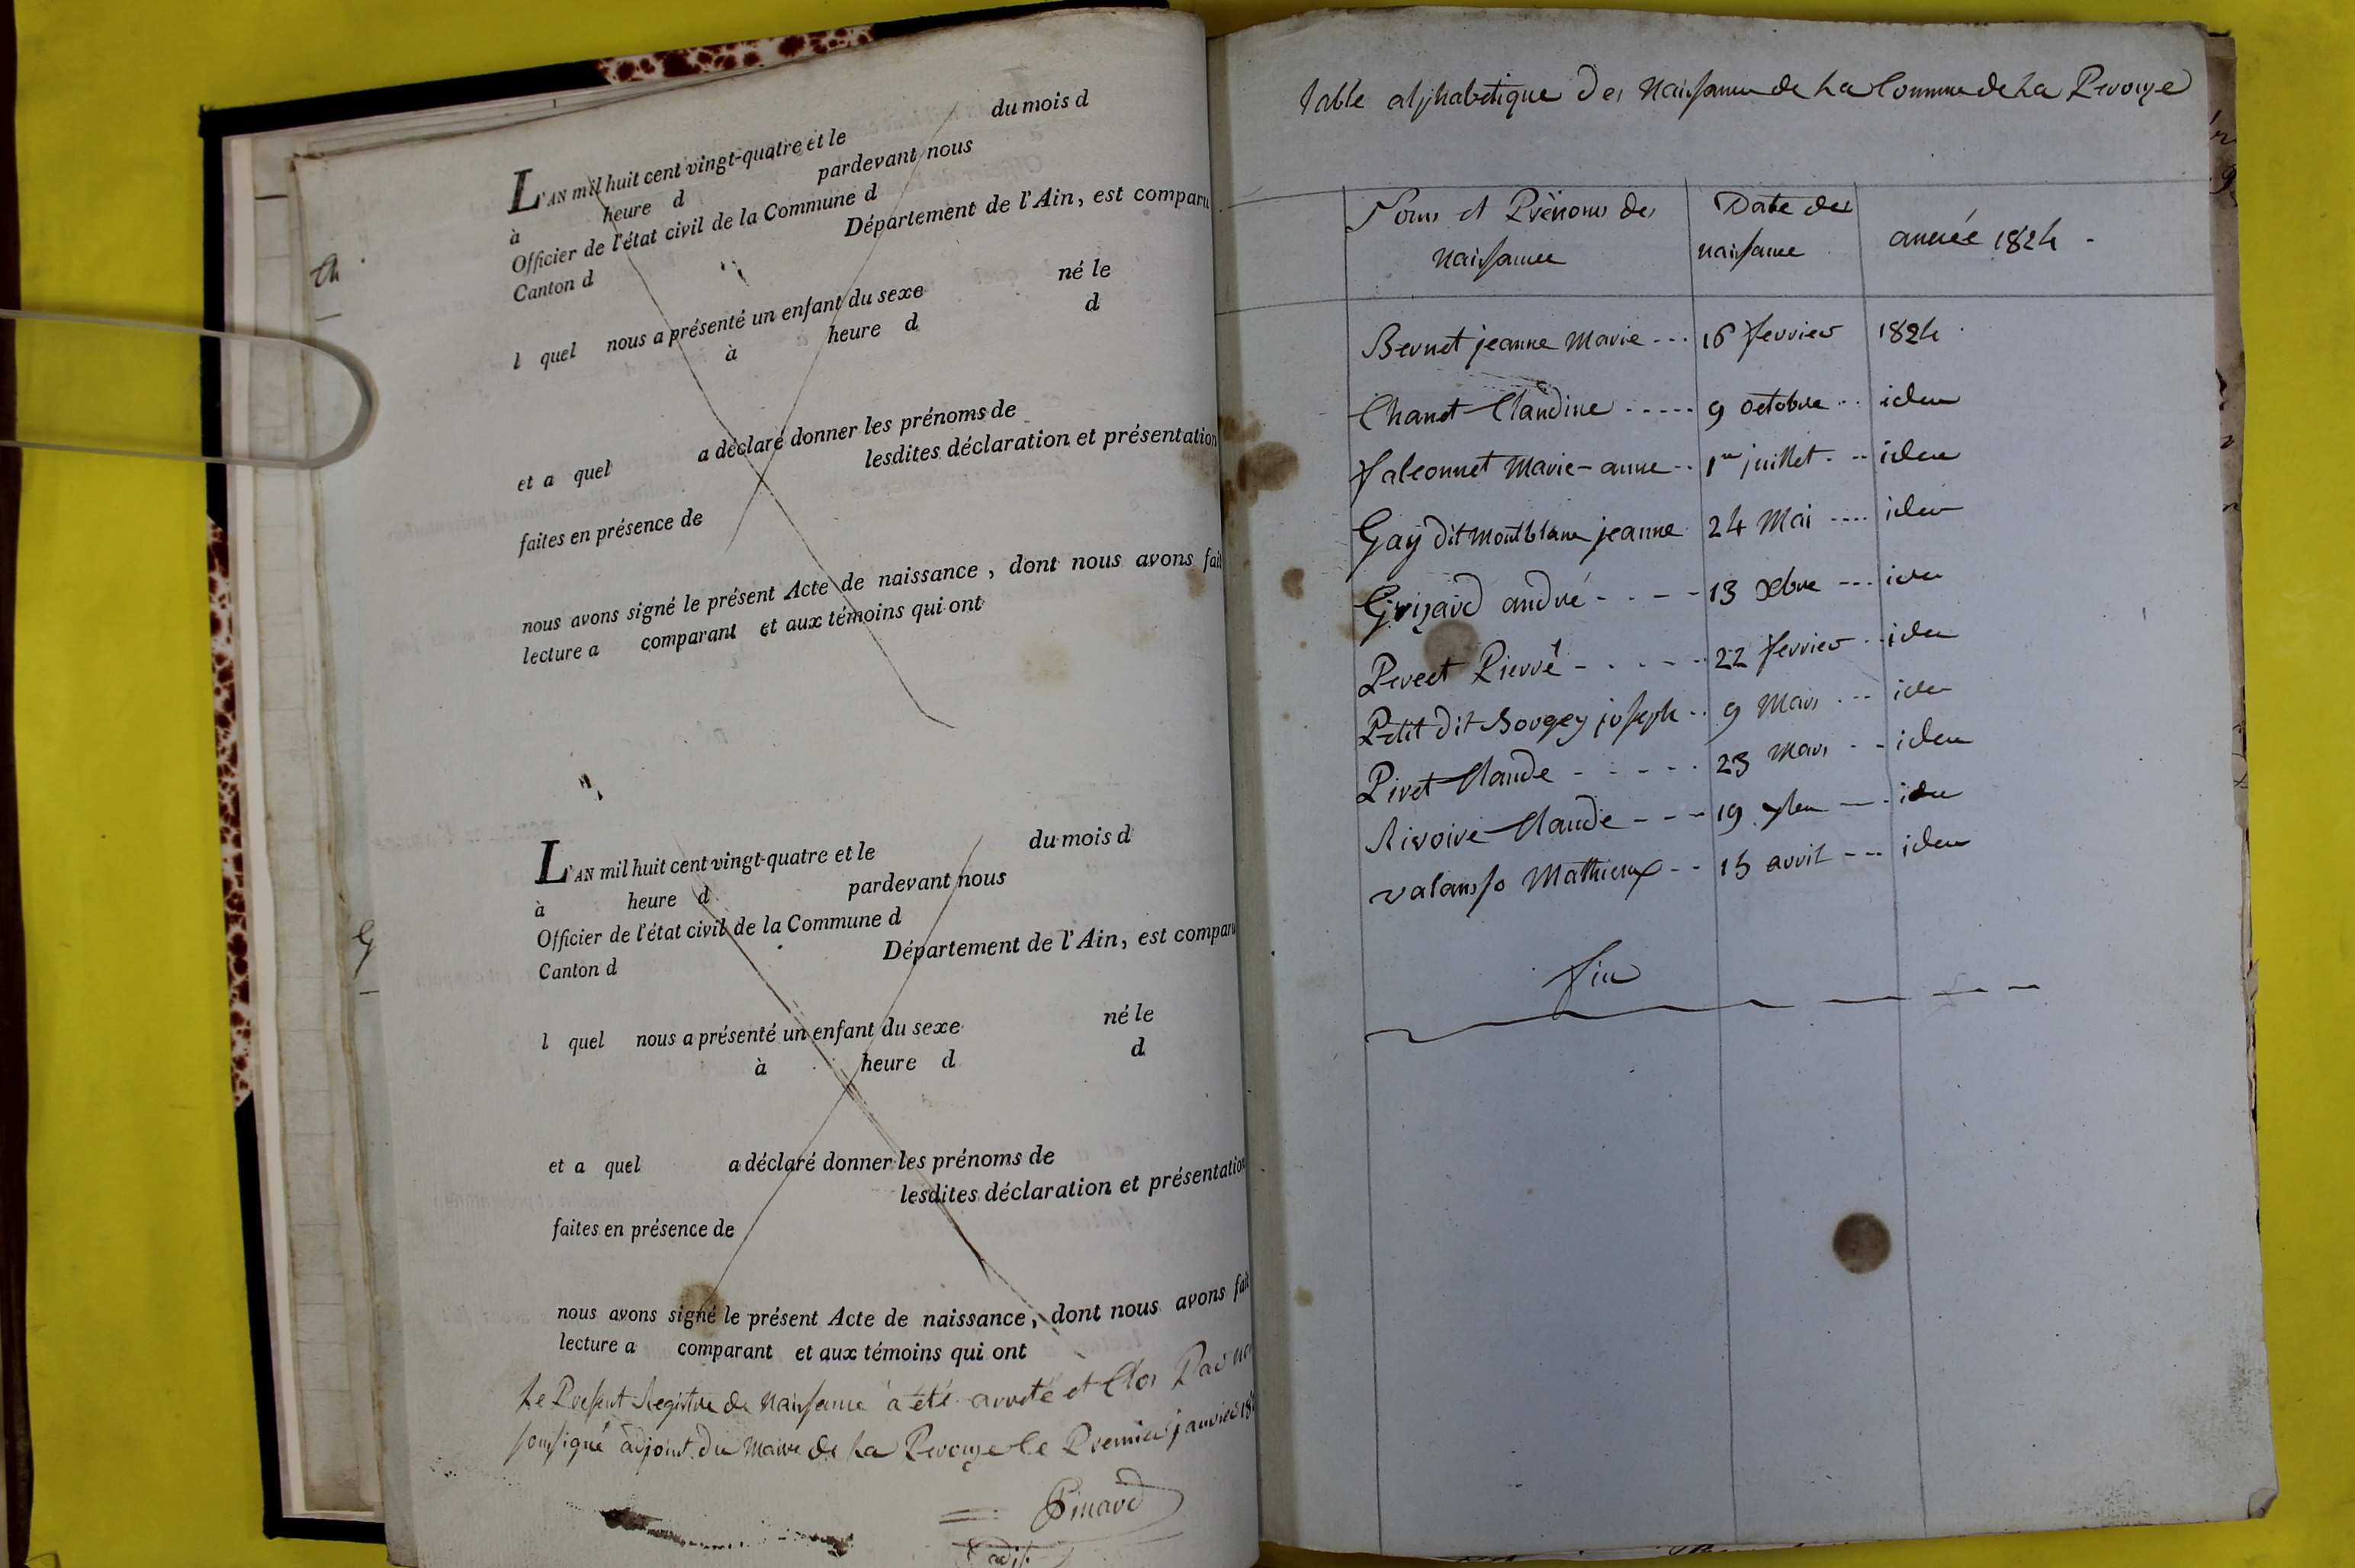 du mois d
L'AN mil huit cent vingt-quatre et le
à heure d pardevant nous
Officier de l'état civil de la Commune d
Canton d Département de l'Ain, est comparu
l quel nous a présenté un enfant du sexe né le
à heure d d
et a quel a déclaré donner les prénoms de
lesdites déclaration et présentation
faites en présence de
nous avons signé le présent Acte de naissance, dont nous avons fait
lecture a comparant et aux témoins qui ont
L'AN mil huit cent vingt-quatre et le du mois d
à heure d pardevant nous
Officier de l'état civil de la Commune d
Canton d Département de l'Ain, est comparu
l quel nous a présenté un enfant du sexe né le
à heure d d
et a quel a déclaré donner les prénoms de
lesdites déclaration et présentation
faites en présence de
nous avons signé le présent Acte de naissance, dont nous avons fait
lecture a comparant et aux témoins qui ont
Le Present Registre de Naissance a été arreté et Clos Par
soussigné adjoint du Maire de La Perouze le Premier janvier
Pinard
adj.
Table alphabetique des Naissance de La Commune de La Perouze
Noms et Prénoms des naissance
Date des naissance
année 1824
Bernet jeanne Marie --- 16 fevrier 1824
Chanet Claudine ----- 9 octobre -- idem
falconnet Marie-anne -- 1er juillet -- idem
Gay dit Montblanc jeanne 24 Mai ---- idem
Grizard andré ---- 13 Xbre --- idem
Perret Pierre ----- 22 fevrier -- idem
Petit dit Bougey joseph -- 9 Mars --- idem
Pivet Claude ----- 23 Mars -- idem
Rivoire Claude --- 19 -- idem
Valansso Mathieux -- 15 avril --- idem
fin